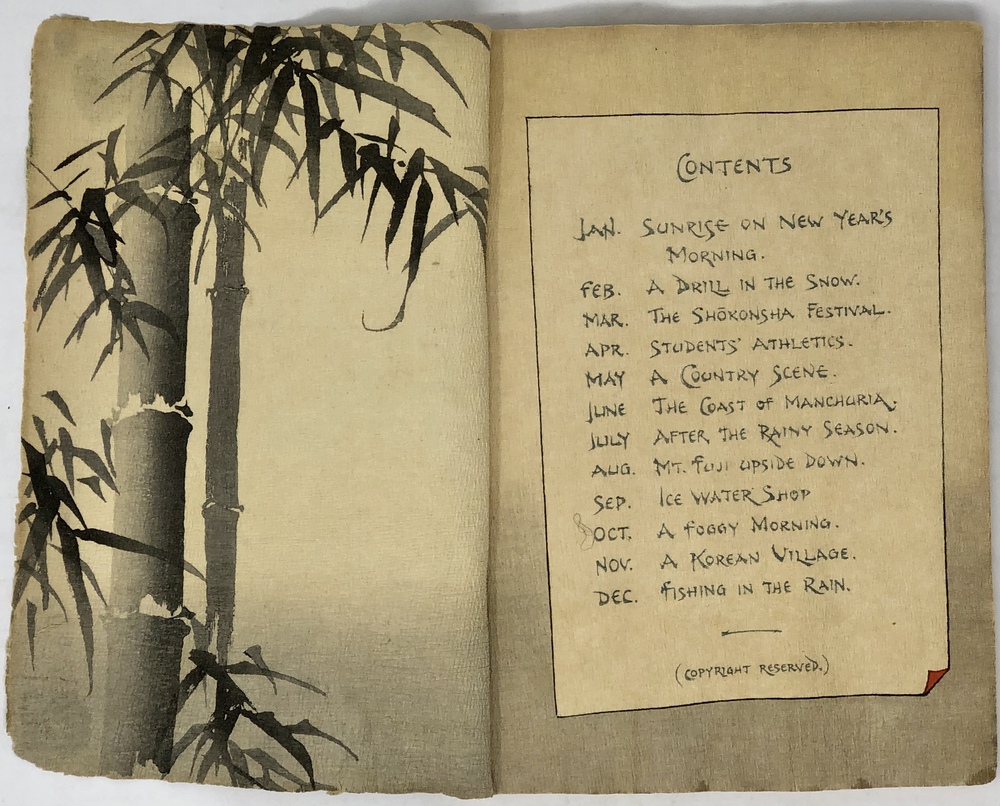 CONTENTS
JAN. SUNRISE ON NEW YEAR'S
MORNING.
FEB. A DRILL IN THE SNOW.
MAR. THE SHŌKONSHA FESTIVAL.
APR. STUDENTS' ATHLETICS.
MAY A COUNTRY SCENE.
JUNE THE COAST OF MANCHURIA.
JULY AFTER THE RAINY SEASON.
AUG. MT. FUJI UPSIDE DOWN.
SEP. ICE WATER SHOP
OCT. A FOGGY MORNING.
NOV. A KOREAN VILLAGE.
DEC. FISHING IN THE RAIN.
(COPYRIGHT RESERVED.)